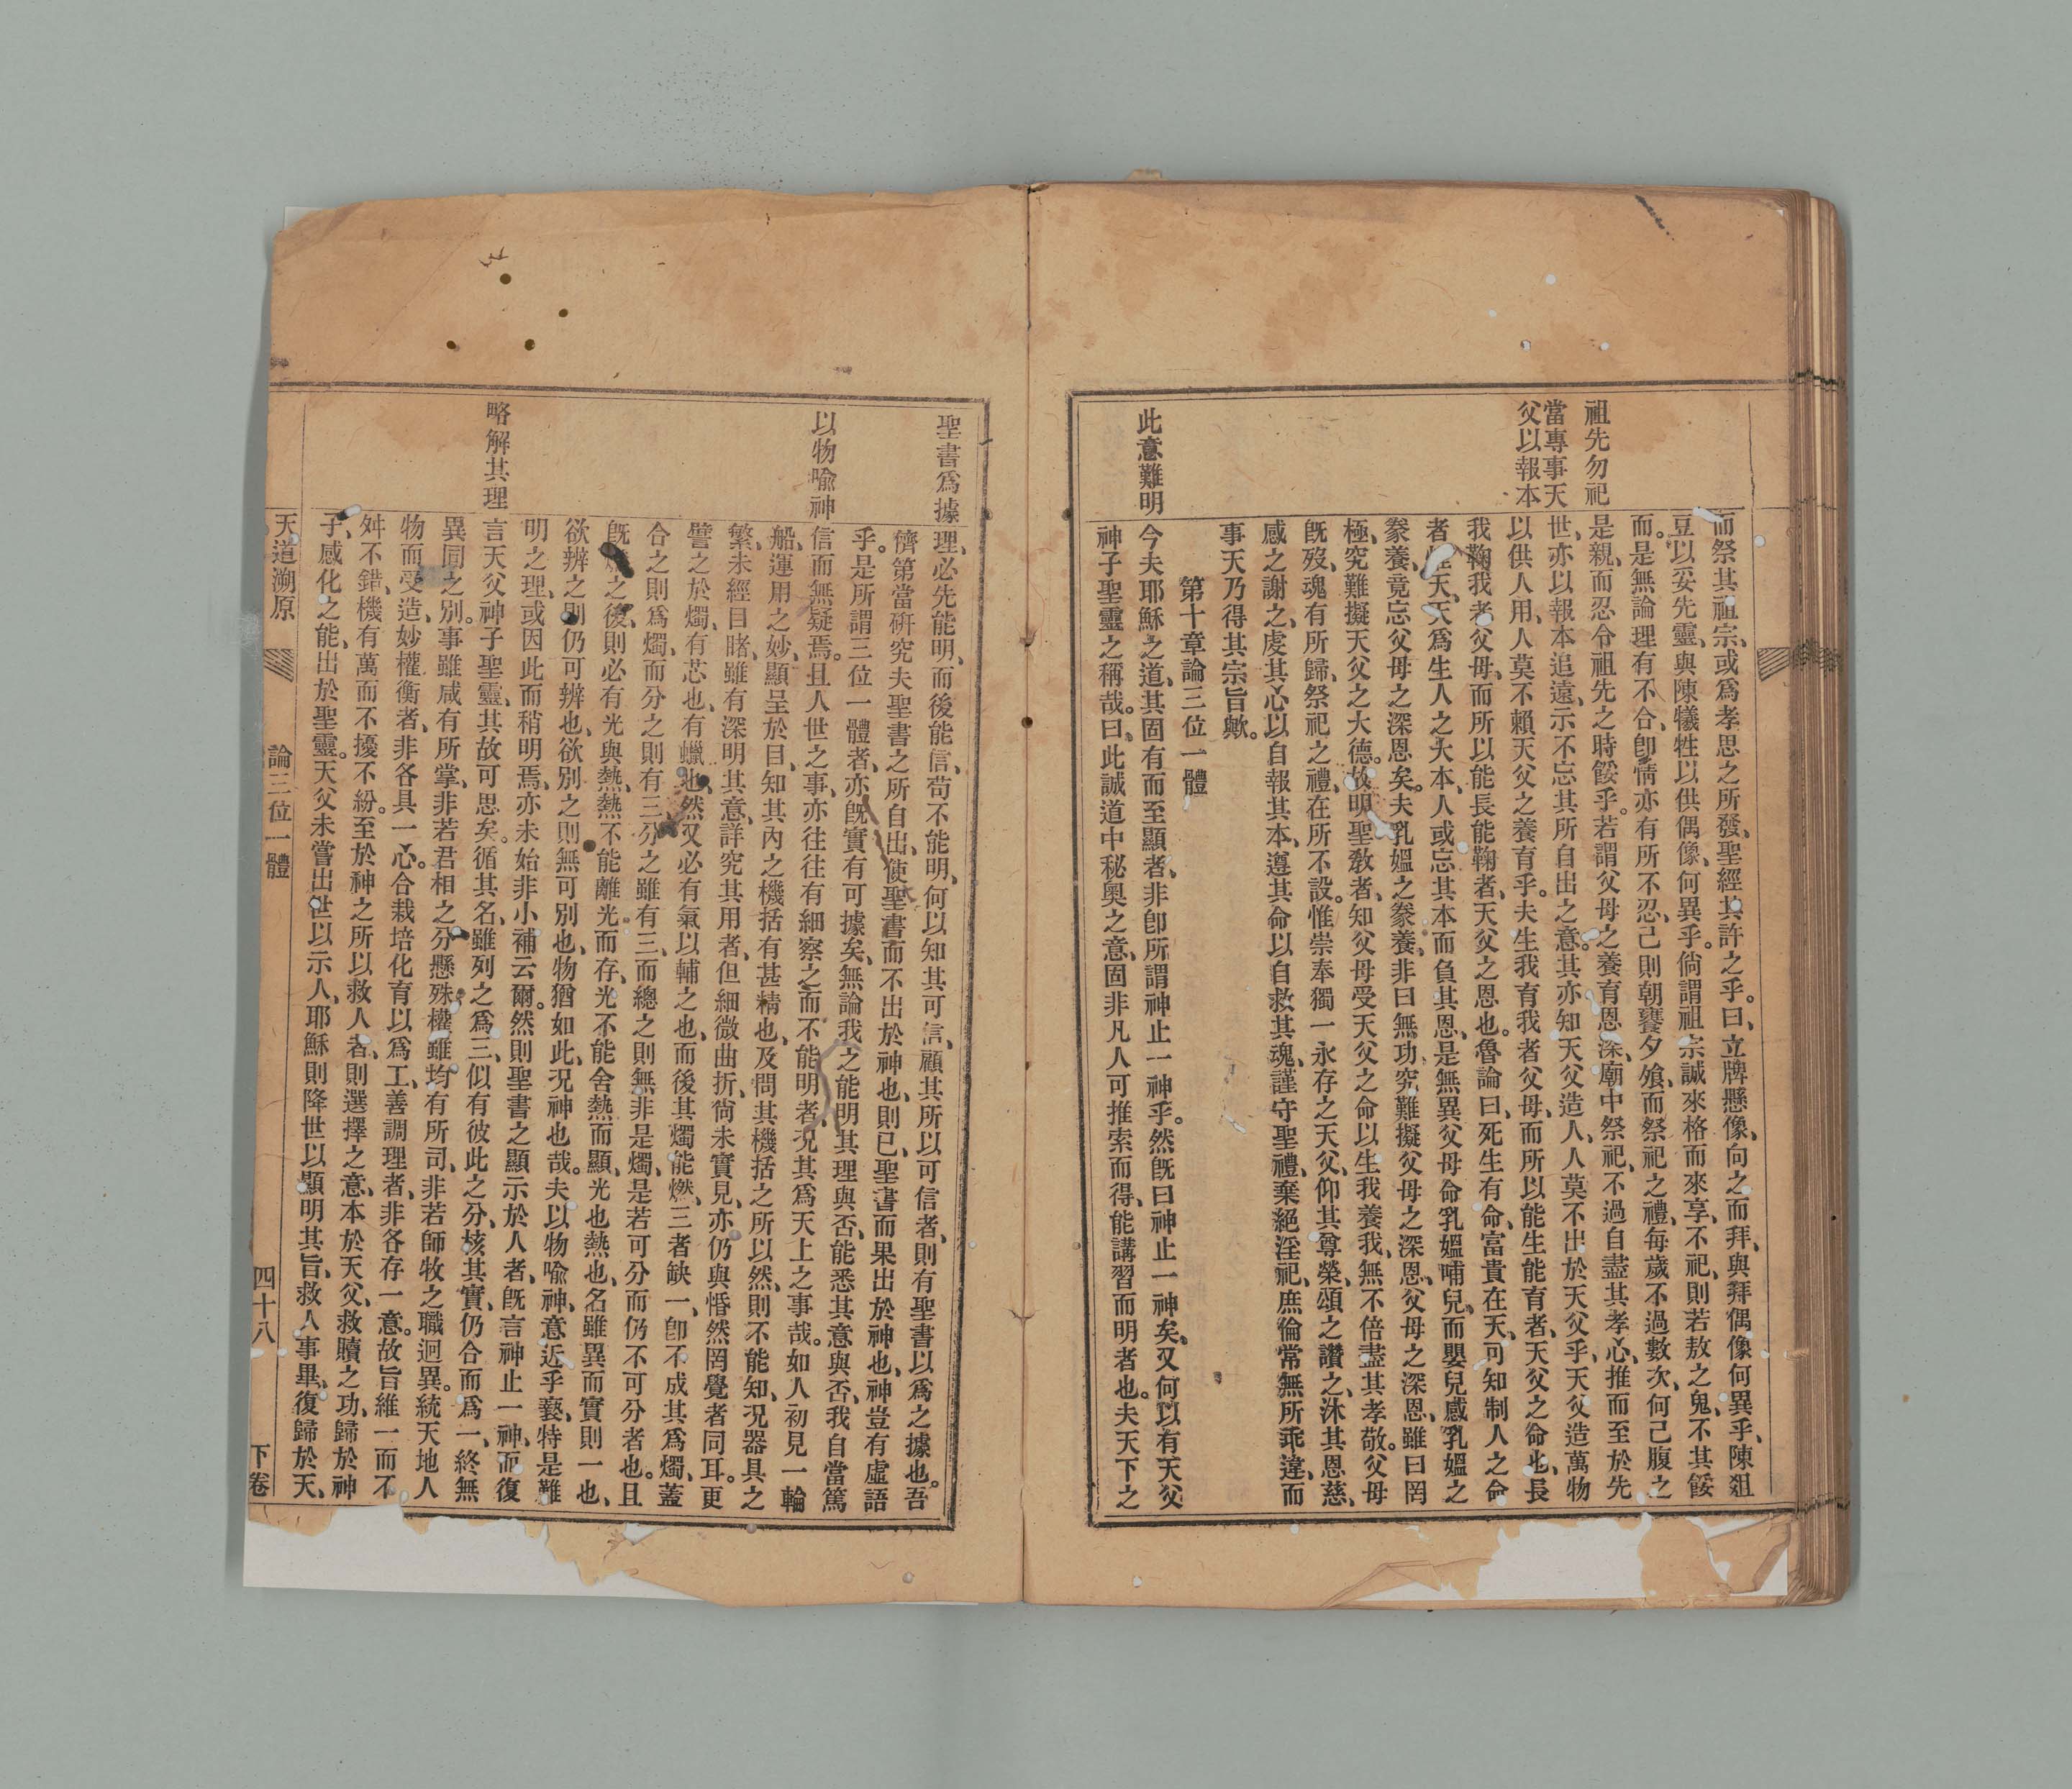 祖先勿祀
當專事天
父以報本
此意難明
而祭其祖宗、或爲孝思之所發、聖經其許之乎。曰、立牌懸像、向之而拜、與拜偶像何異乎、陳俎
豆以妥先靈、與陳犧牲以供偶像、何異乎。倘謂祖宗誠來格而來享、不祀、則若敖之鬼、不其餒
而。是無論理有不合、卽情亦有所不忍、己則朝饔夕飧、而祭祀之禮、每歲不過數次、何己腹之
是親、而忍令祖先之時餒乎。若謂父母之養育恩深、廟中祭祀、不過自盡其孝心、推而至於先
世、亦以報本追遠、示不忘其所自出之意。其亦知天父造人、人莫不出於天父乎、天父造萬物
以供人用、人莫不賴天父之養育乎。夫生我育我者父母、而所以能生能育者、天父之命也、長
我鞠我者父母、而所以能長能鞠者、天父之恩也。魯論曰、死生有命、富貴在天、可知制人之命
者惟天、天爲生人之大本、人或忘其本而負其恩、是無異父母命乳媼哺兒、而嬰兒感乳媼之
豢養、竟忘父母之深恩矣。夫乳媼之豢養、非曰無功、究難擬父母之深恩、父母之深恩、雖曰罔
極、究難擬天父之大德。故明聖敎者、知父母受天父之命以生我養我、無不倍盡其孝敬。父母
旣歿、魂有所歸、祭祀之禮、在所不設。惟崇奉獨一永存之天父、仰其尊榮、頌之讚之、沐其恩慈、
感之謝之、虔其心以自報其本、遵其命以自救其魂、謹守聖禮、棄絕淫祀、庶倫常無所乖違、而
事天乃得其宗旨歟。
第十章論三位一體
今夫耶穌之道、其固有而至顯者、非卽所謂神止一神乎。然旣曰神止一神矣、又何以有天父
神子聖靈之稱哉。曰、此誠道中秘奧之意、固非凡人可推索而得、能講習而明者也。夫天下之
聖書爲據
以物喩神
略解其理
理、必先能明、而後能信、苟不能明、何以知其可信、顧其所以可信者、則有聖書以爲之據也。吾
儕第當研究夫聖書之所自出、使聖書而不出於神也、則已、聖書而果出於神也、神豈有虛語
乎。是所謂三位一體者、亦旣實有可據矣、無論我之能明其理與否、能悉其意與否、我自當篤
信而無疑焉。且人世之事、亦往往有細察之而不能明者、況其爲天上之事哉。如人初見一輪
船、運用之妙、顯呈於目、知其內之機括有甚精也、及問其機括之所以然、則不能知、況器具之
繁、未經目睹、雖有深明其意、詳究其用者、但細微曲折、尙未實見、亦仍與惛然罔覺者同耳。更
譬之於燭、有芯也、有蠟也、然又必有氣以輔之也、而後其燭能燃、三者缺一、卽不成其爲燭、蓋
合之則爲燭、而分之則有三、分之雖有三、而總之則無非是燭、是若可分而仍不可分者也。且
旣燃之後、則必有光與熱、熱不能離光而存、光不能舍熱而顯、光也熱也、名雖異而實則一也、
欲辨之則仍可辨也、欲別之則無可別也、物猶如此、況神也哉。夫以物喩神、意近乎褻、特是難
明之理、或因此而稍明焉、亦未始非小補云爾。然則聖書之顯示於人者、旣言神止一神、而復
言天父神子聖靈、其故可思矣。循其名、雖列之爲三、似有彼此之分、核其實、仍合而爲一、終無
異同之別。事雖咸有所掌、非若君相之分懸殊、權雖均有所司、非若師牧之職迥異。統天地人
物而受造、妙權衡者、非各具一心。合栽培化育以爲工、善調理者、非各存一意。故旨維一而不
舛不錯、機有萬而不擾不紛。至於神之所以救人者、則選擇之意、本於天父、救贖之功、歸於神
子、感化之能、出於聖靈。天父未嘗出世以示人、耶穌則降世以顯明其旨、救人事畢、復歸於天、
天道溯原
論三位一體
四十八
下卷